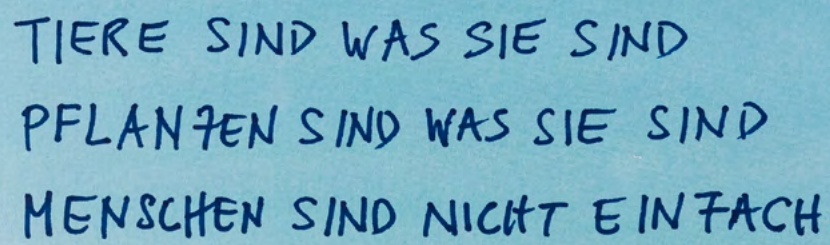 TIERE SIND WAS SIE SIND
PFLANZEN SIND WAS SIE SIND
MENSCHEN SIND NICHT EINFACH